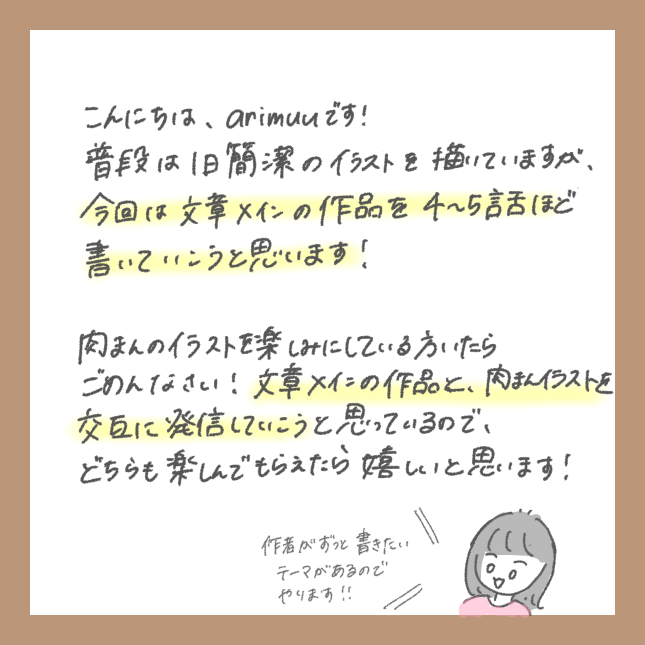 こんにちは、arimuuです!
普段は1日簡潔のイラストを描いていますが、
今回は文章メインの作品を4〜5話ほど
書いていこうと思います!
肉まんのイラストを楽しみにしている方いたら
ごめんなさい!文章メインの作品と、肉まんイラストを
交互に発信していこうと思っているので、
どちらも楽しんでもらえたら嬉しいと思います!
作者がずっと書きたい
テーマがあるので
やります!!